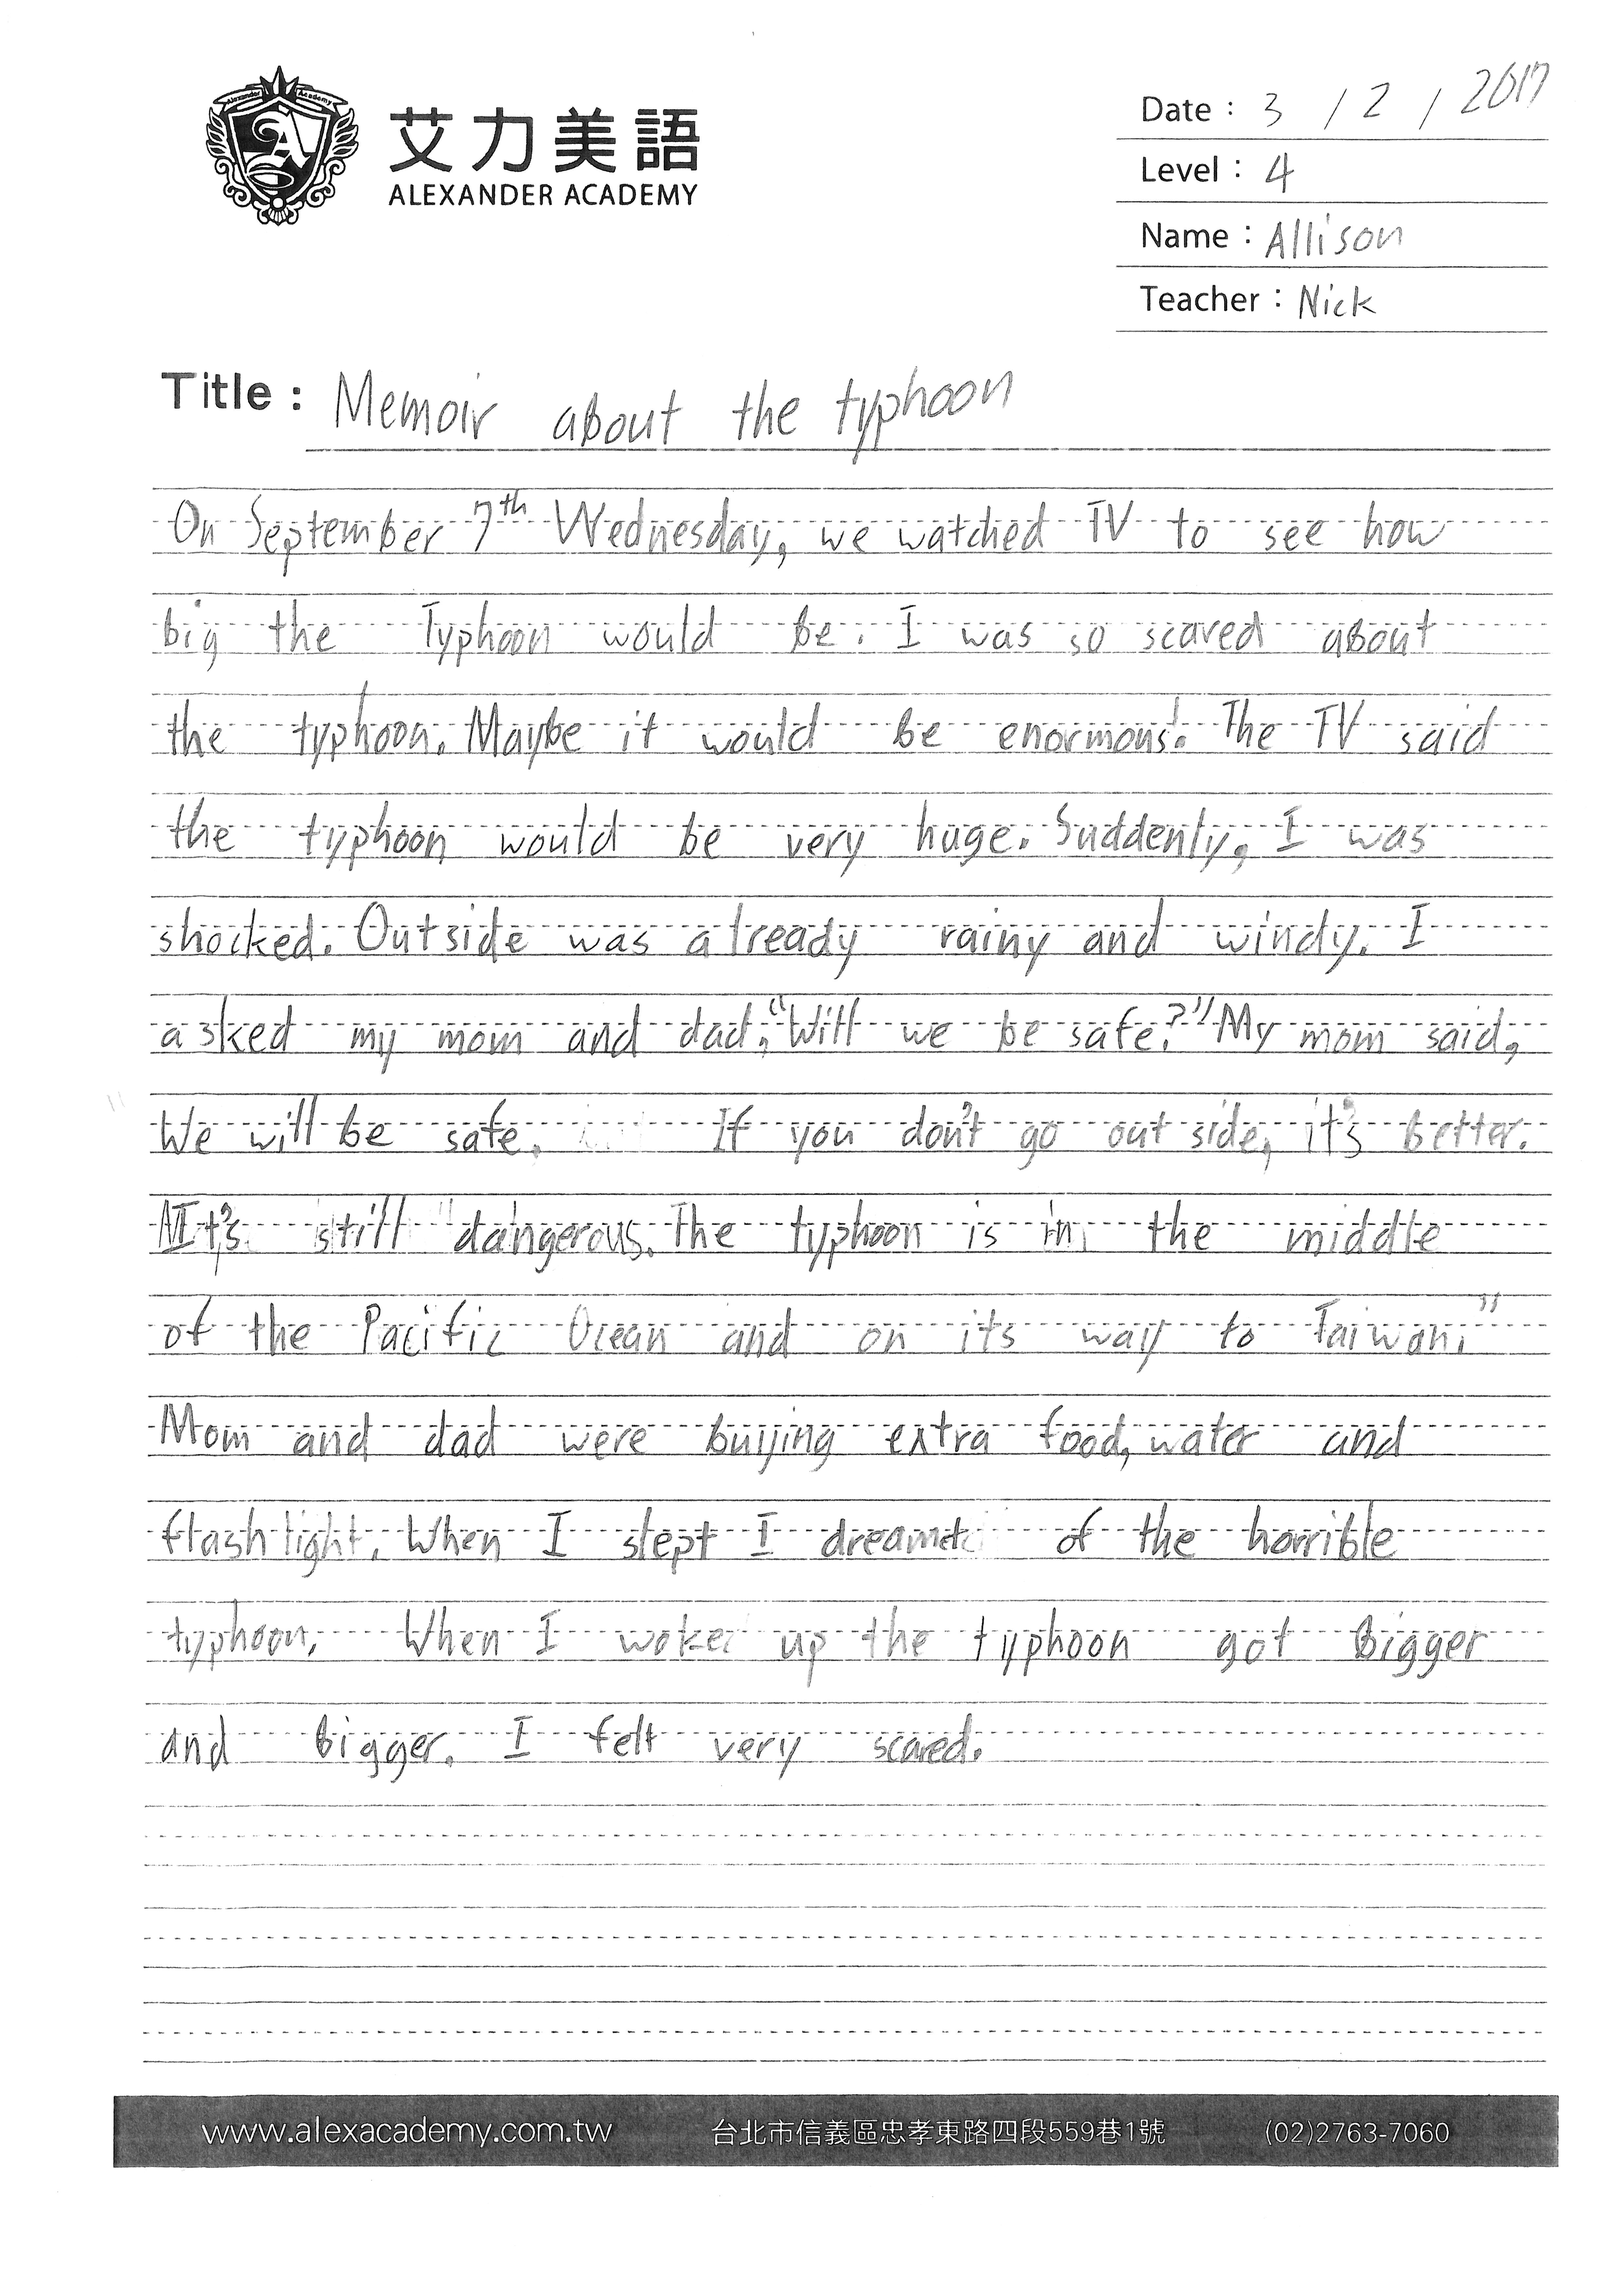 Alexander Academy
艾力美語
ALEXANDER ACADEMY
Date : 3 / 2 / 2017
Level : 4
Name : Allison
Teacher : Nick
Title : Memoir about the typhoon
On September 7th Wednesday, we watched TV to see how
big the Typhoon would be. I was so scared about
the typhoon. Maybe it would be enormous! The TV said
the typhoon would be very huge. Suddenly, I was
shocked. Outside was already rainy and windy. I
asked my mom and dad, "Will we be safe?" My mom said,
"We will be safe. If you don't go out side, it's better.
It's still dangerous. The typhoon is in the middle
of the Pacific Ocean and on its way to Taiwan."
Mom and dad were buying extra food, water and
flash light. When I slept I dreamt of the horrible
typhoon. When I woke up the typhoon got bigger
and bigger. I felt very scared.
www.alexacademy.com.tw 台北市信義區忠孝東路四段559巷1號 (02)2763-7060